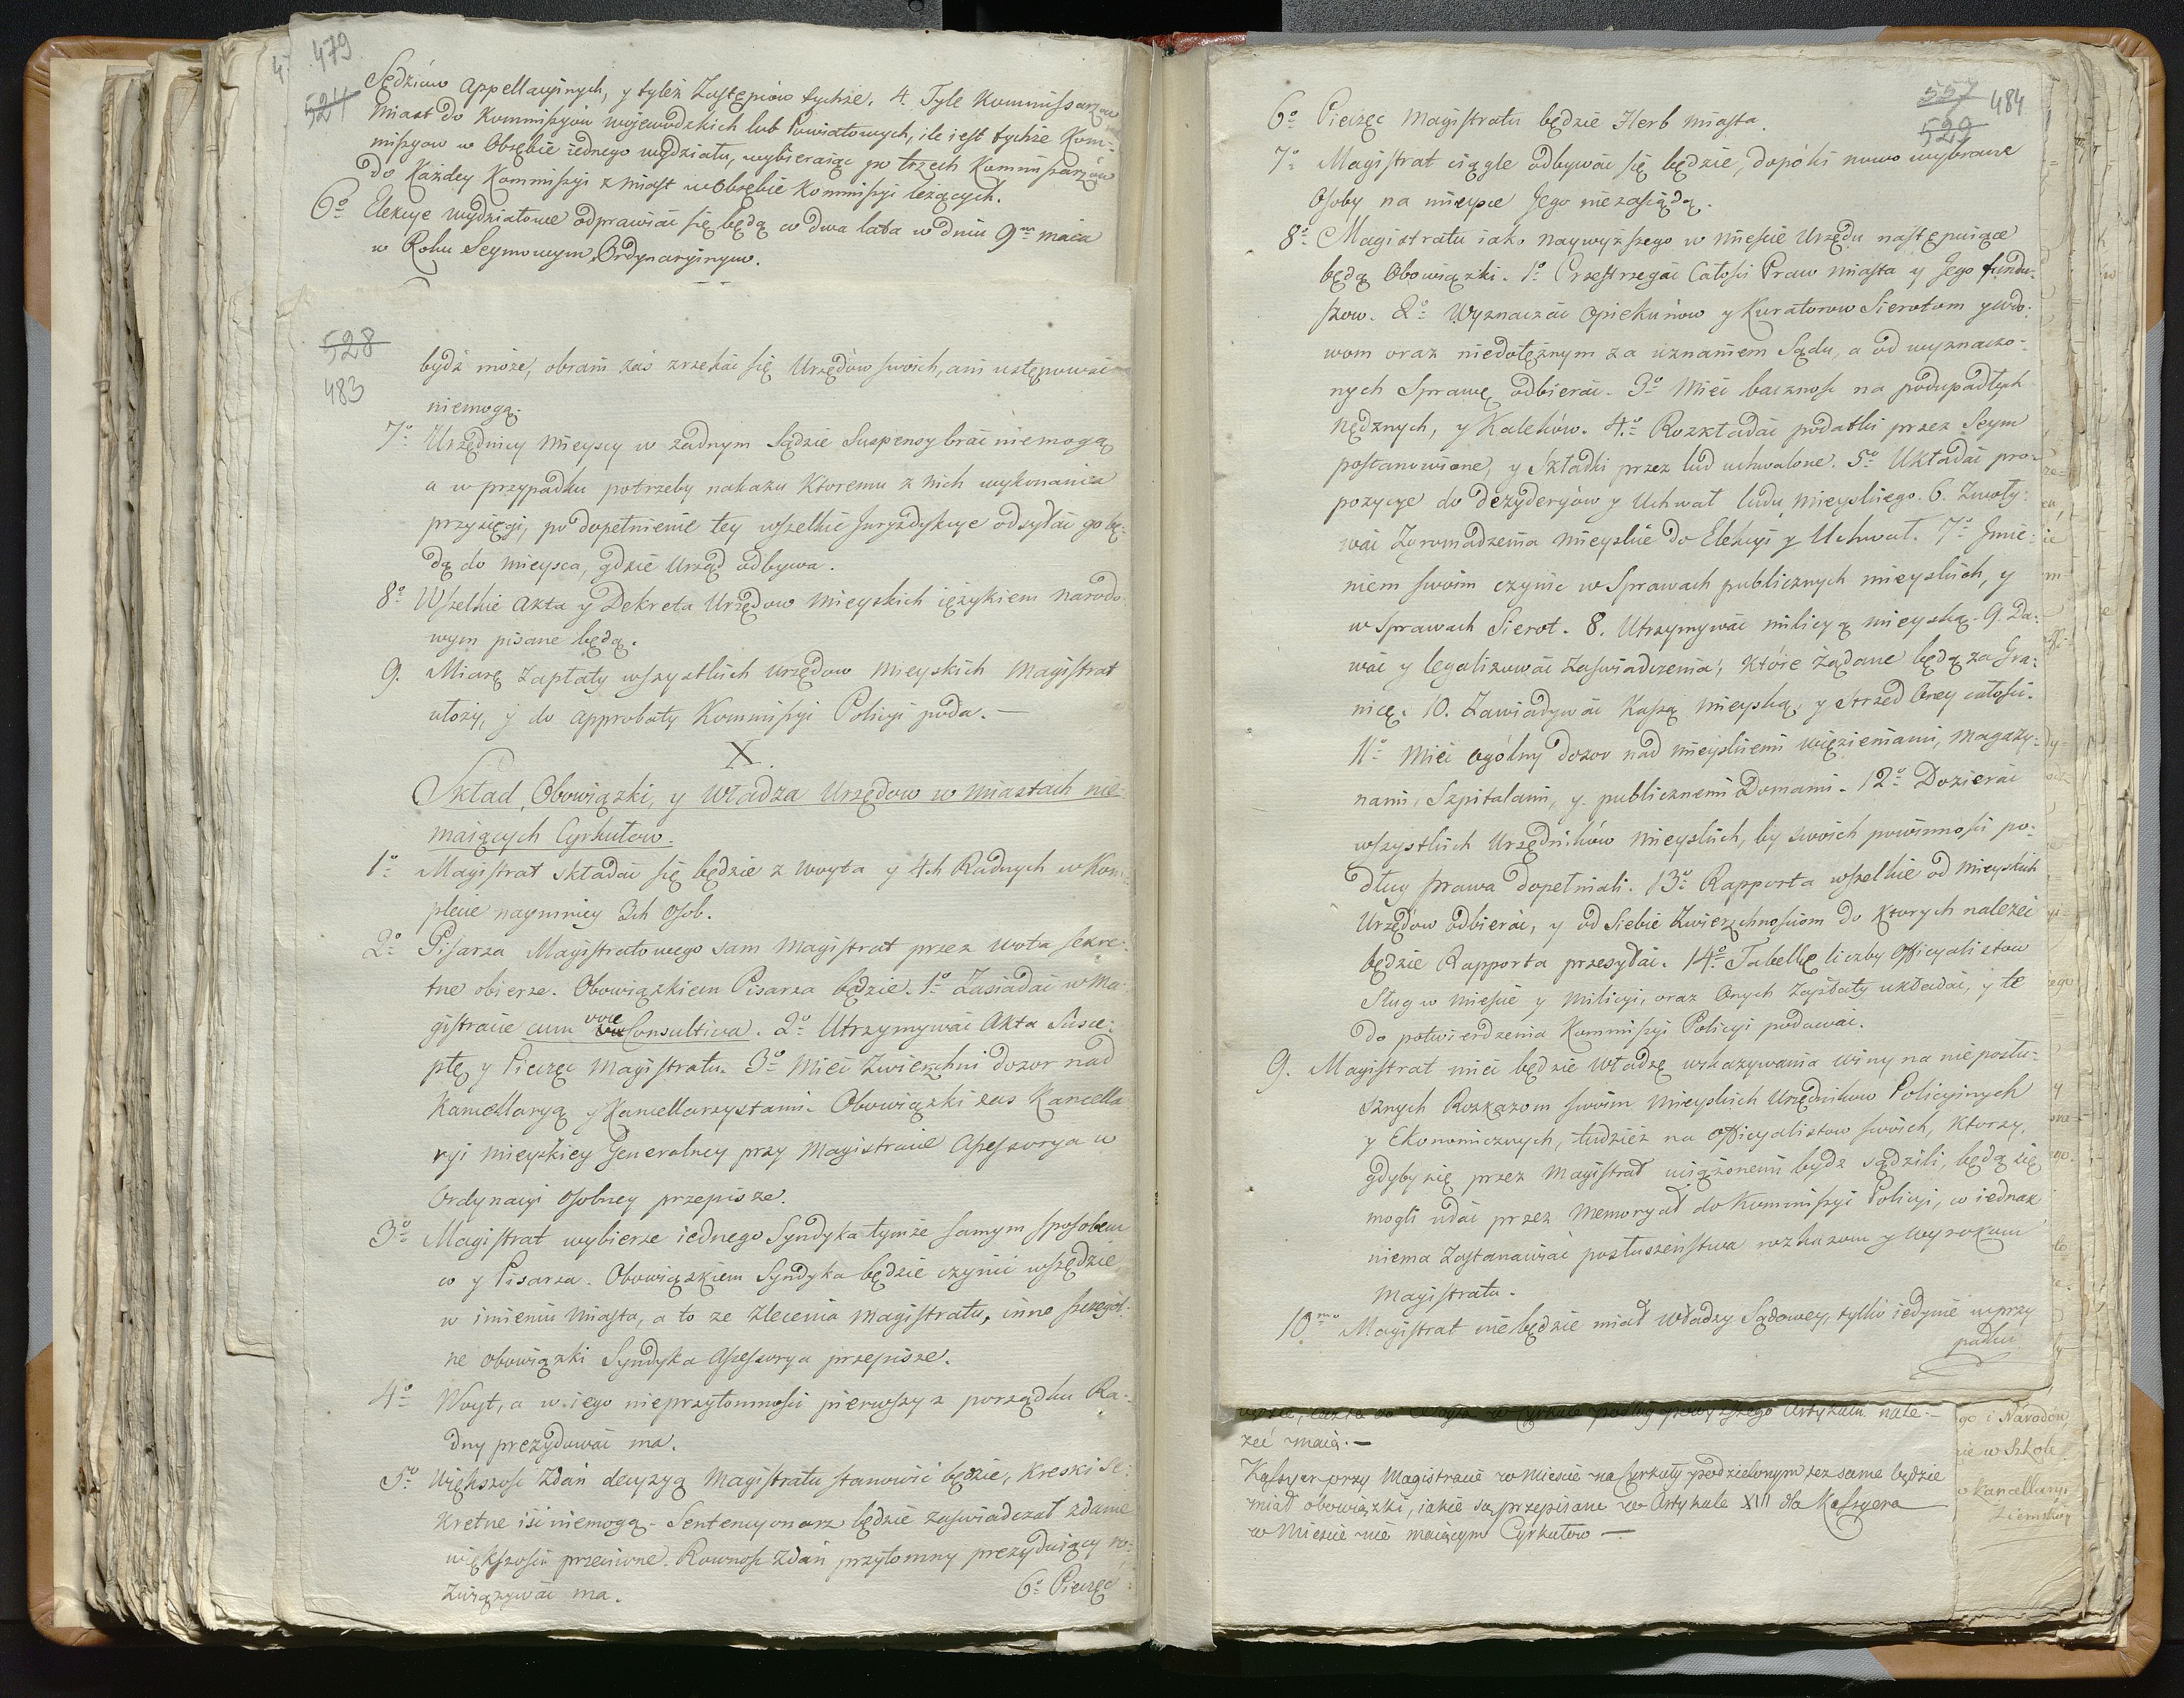 479
524
Sędziow Appellacyinych, y tyleż Zastępcow tychże. 4. Tyle Kommissarzow
Miast do Kommissyiow Wojewodzkich lub Powiatowych, ile iest tychże Kom-
missyow w Obrębie iednego wydziału, wybieraiąc po trzech Kommissarzów
do Każdey Kommissyi z Miast w Obrębie Kommissyi leżących.
6º Elekcye wydziałowe odprawiać się będą co dwa lata w dniu 9m maia
w Roku Seymowym Ordynaryinym.
528
483
bydź może, obrani zaś zrzekać się Urzędów swoich, ani ustępować
niemogą.
7º Urzędnicy Mieyscy w żadnym Sądzie Suspensy brać niemogą
a w przypadku potrzeby nakazu Ktoremu z nich wykonania
przysięgi, po dopełnienie tey wszelkie Juryzdykcye odsyłać go bę-
dą do mieysca, gdzie Urząd odbywa.
8º Wszelkie Akta y Dekreta Urzędow Mieyskich ięzykiem narodo
wym pisane będą.
9. Miarę Zapłaty wszystkich urzędow Mieyskich Magistrat
ułoży, y do approbaty Kommissyi Policyi poda. —
X.
Skład, Obowiązki, y Władza Urzędow w Miastach nie-
maiących Cyrkułow.
1º Magistrat składać się będzie z Woyta y 4ch Radnych w Kom-
plecie naymniey 3ch Osob.
2º Pisarza Magistratowego sam Magistrat przez wota sekre-
tne obierze. Obowiązkiem Pisarza będzie. 1º Zasiadać w Ma-
gistracie cum voce Consultiva. 2º Utrzymywać Akta Susce-
ptę y Pieczęc Magistratu. 3º Mieć Zwierzchni dozor nad
Kancellaryą y Kancellarzystami. Obowiązki zas Kancella
ryi Mieyskiey Generalney przy Magistracie Assessorya w
Ordynacyi Osobney przepisze.
3º Magistrat wybierze iednego Syndyka tymże samym sposobem
co y Pisarza. Obowiązkiem Syndyka będzie czynić wszędzie
w imieniu Miasta, a to ze zlecenia Magistratu, inne szczegół-
ne obowiązki Syndyka Assessorya przepisze.
4º Woyt, a w iego nieprzytomności pierwszy z porządku Ra-
dny prezydować ma.
5º Większość Zdań decyzyą Magistratu stanowić będzie, Kreski Se-
kretne iść niemogą. Sentencyonarz będzie zaswiadczał zdanie
większości przeciwne. Rownosc Zdań przytomny prezyduiący ro-
związywać ma.
6º Pieczęć
557 484
529
6º Pieczęc Magistratu będzie Herb miasta.
7º Magistrat ciągle odbywać się będzie, dopóki nowo wybrane
Osoby na mieysce Jego niezasiądą.
8º Magistratu iako naywyższego w Mieście Urzędu następuiące
będą Obowiązki. 1º Przestrzegać Całości Praw Miasta y Jego fundu-
szow. 2º Wyznaczać opiekunow y Kuratorow Sierotom y wdo-
wom oraz niedołężnym za uznaniem Sądu, a od wyznaczo-
nych Sprawę odbierać. 3º Mieć baczność na podupadłych
Nędznych, y Kaleków. 4º Rozkładać podatki przez Seym
postanowione, y Składki przez lud uchwalone. 5º Układać pro-
pozycye do dezyderyów y Uchwał ludu Mieyskiego. 6. Zwoły-
wać Zgromadzenia Mieyskie do Elekcyi y Uchwał. 7º Jmie-
niem swoim czynić w Sprawach publicznych mieyskich, y
w Sprawach Sierot. 8. Utrzymywać milicyą mieyską. 9. Da-
wać y legalizować Zaswiadczenia, które żądane będą za Gra-
nicę. 10. Zawiadywać Kassą Mieyską, y strzedz Oney całości.
11º Mieć ogólny dozor nad mieyskiemi więzieniami, Magazy-
nami, Szpitalami, y publicznemi Domami. 12º Dozierać
wszystkich Urzędników Mieyskich, by swoich powinności po-
dług prawa dopełniali. 13º Rapporta wszelkie od Mieyskich
Urzędow odbierać, y od siebie Zwierzchnościom do Ktorych należeć
będzie Rapporta przesyłać. 14º Tabellę liczby Officyalistow
Sług w Mieście y Milicyi, oraz Onych Zapłaty układać, y te
do potwierdzenia Kommissyi Policyi podawać.
9. Magistrat mieć będzie władzę wskazywania winy na nieposłu-
sznych Rozkazom swoim Mieyskich Urzędnikow Policyinych
y Ekonomicznych, tudzież na Officyalistow swoich, Ktorzy,
gdyby się przez Magistrat uciążonemi bydz sądzili, będą się
mogli udać przez Memoryał do Kommissyi Policyi, co iednak
niema Zastanawiać posłuszeństwa rozkazom y wyrokom
Magistratu.
10mo Magistrat nie będzie miał władzy Sądowey, tylko iedynie w przy
padku
podług powyższego Artykułu nale-
żeć maią. —
Kassyer przy Magistracie w Mieście na Cyrkuły podzielonym też same będzie
miał obowiązki, iakie są przepisane w Artykule XIII dla Kassyera
w Mieście nie maiącym Cyrkułow —
go i Narodow
nie w Szkole
o Kancellaryi
Ziemskiey